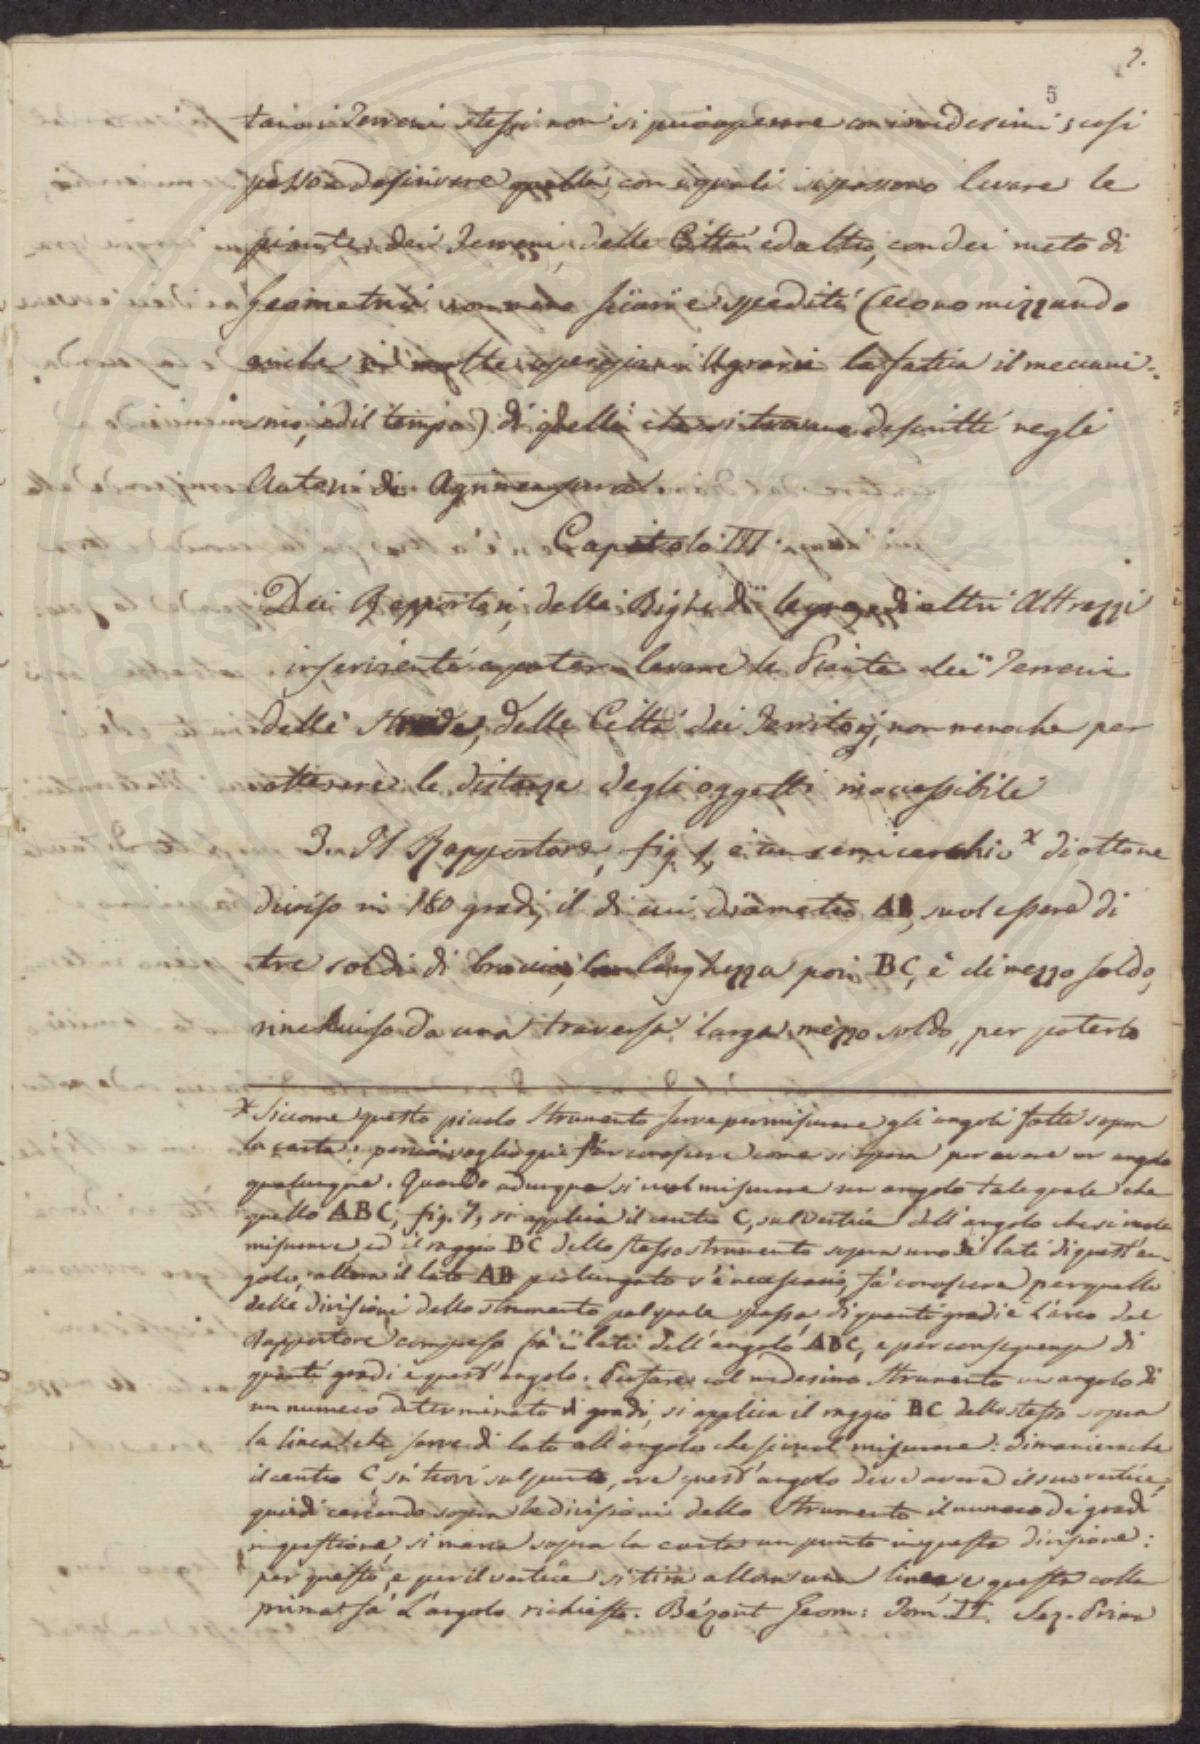 7.
5
tano i Terreni stessi non si può operare con i medesimi; così
passo a descrivere quelli, con i quali si possono levare le
piante, dei Terreni, delle Città ed altro, con dei metodi
Geometrici non meno sicuri e spediti (economizzando
anche in molte operazioni Agrarie la fatica il meccani-
smo, ed il tempo) di quelli che si trovano descritti negli
Autori di Agrimensura.
Capitolo III
Dei Rapportori, delle Righe di legno, e di altri Attrezzi
inservienti a poter levare le Piante dei Terreni
delle Strade, delle Città dei Territorj, non meno che per
ottenere le distanze degli oggetti inaccessibile
3. Il Rapportore, fig. 1, è un semicerchio x di ottone
diviso in 180 gradi, il di cui diametro AB, suol essere di
tre soldi di braccio, la larghezza poi BC, è di mezzo soldo,
rinchiuso da una traversa larga mezzo soldo, per poterlo
x Siccome questo piccolo strumento serve per misurare gli angoli fatti sopra
la carta: perciò voglio qui far conoscere come si opera per avere un angolo
qualunque. Quando adunque si vuol misurare un angolo tale quale che
quello ABC, fig. 7, si applica il centro C, sul vertice dell'angolo che si vuole
misurare, ed il raggio BC dello stesso strumento sopra uno di lati di quest'an-
golo, allora il lato AB prolungato s'è necessario, fa conoscere per quelle
delle divisioni dello strumento pel quale passa di quanti gradi è l'arco del
Rapportore compreso frà i lati dell'angolo ABC, e per conseguenza di
quanti gradi è quest'angolo. Per fare col medesimo strumento un angolo di
un numero determinato di gradi, si applica il raggio BC dello stesso sopra
la linea che serve di lato all'angolo che si vuol misurare: dimanierache
il centro C, si trovi sul punto, ove quest'angolo deve avere il suo vertice,
quindi cercando sopra le divisioni dello strumento il numero di gradi
in questione, si marca sopra la carta un punto in questa divisione:
per questo, e per il vertice si tira allora una linea e questa colla
prima fà l'angolo richiesto. Bézout Geom: Tom. II. Sez. Prima